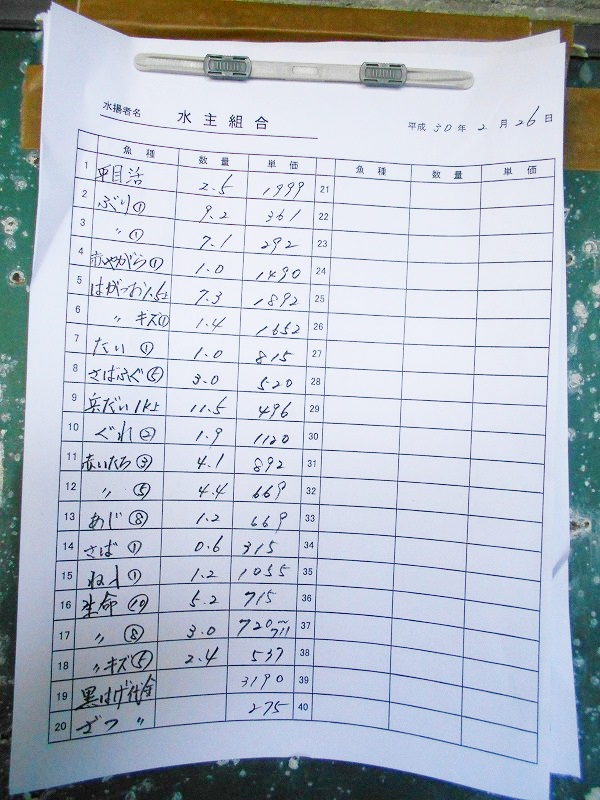 水揚者名 水主組合 平成 30 年 2 月 26 日
魚種 数量 単価 魚種 数量 単価
1 平目活 2.5 1999 21
2 ぶり① 9.2 361 22
3 〃 ① 7.1 292 23
4 赤やがら① 1.0 1490 24
5 はがつお1.5上 7.3 1892 25
6 〃 キズ① 1.4 1652 26
7 たい ① 1.0 815 27
8 さばふぐ⑤ 3.0 520 28
9 兵だい 1K上 11.5 496 29
10 ぐれ② 1.9 1120 30
11 赤いたち③ 4.1 892 31
12 〃 ⑤ 4.4 669 32
13 あじ⑧ 1.2 669 33
14 さば① 0.6 315 34
15 ① 1.2 1055 35
16 生命⑩ 5.2 715 36
17 〃 ⑧ 3.0 720〜711 37
18 〃キズ⑤ 2.4 537 38
19 黒はげ代金 3190 39
20 ざつ 〃 275 40